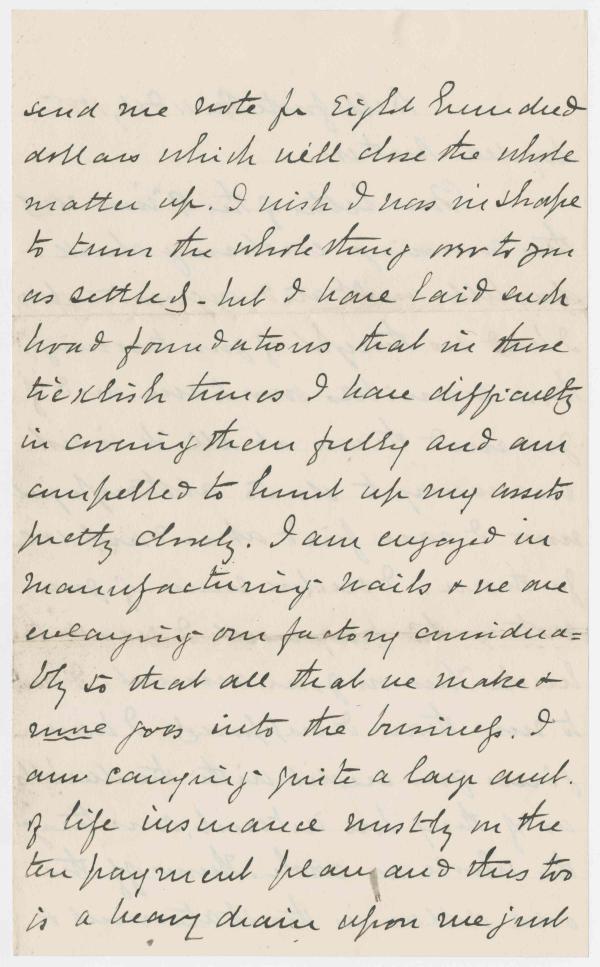 send me note for Eight hundred
dollars which will close the whole
matter up. I wish I was in shape
to turn the whole thing over to you
as settled - but I have laid such
broad foundations that in these
ticklish times I have difficulty
in covering them fully and am
compelled to hunt up my assets
pretty closely. I am engaged in
manufacturing nails & we are
enlarging our factory considera=
bly so that all that we make &
more goes into the business. I
am carrying quite a large amt.
of life insurance mostly on the
ten payment plan and this too
is a heavy drain upon me just